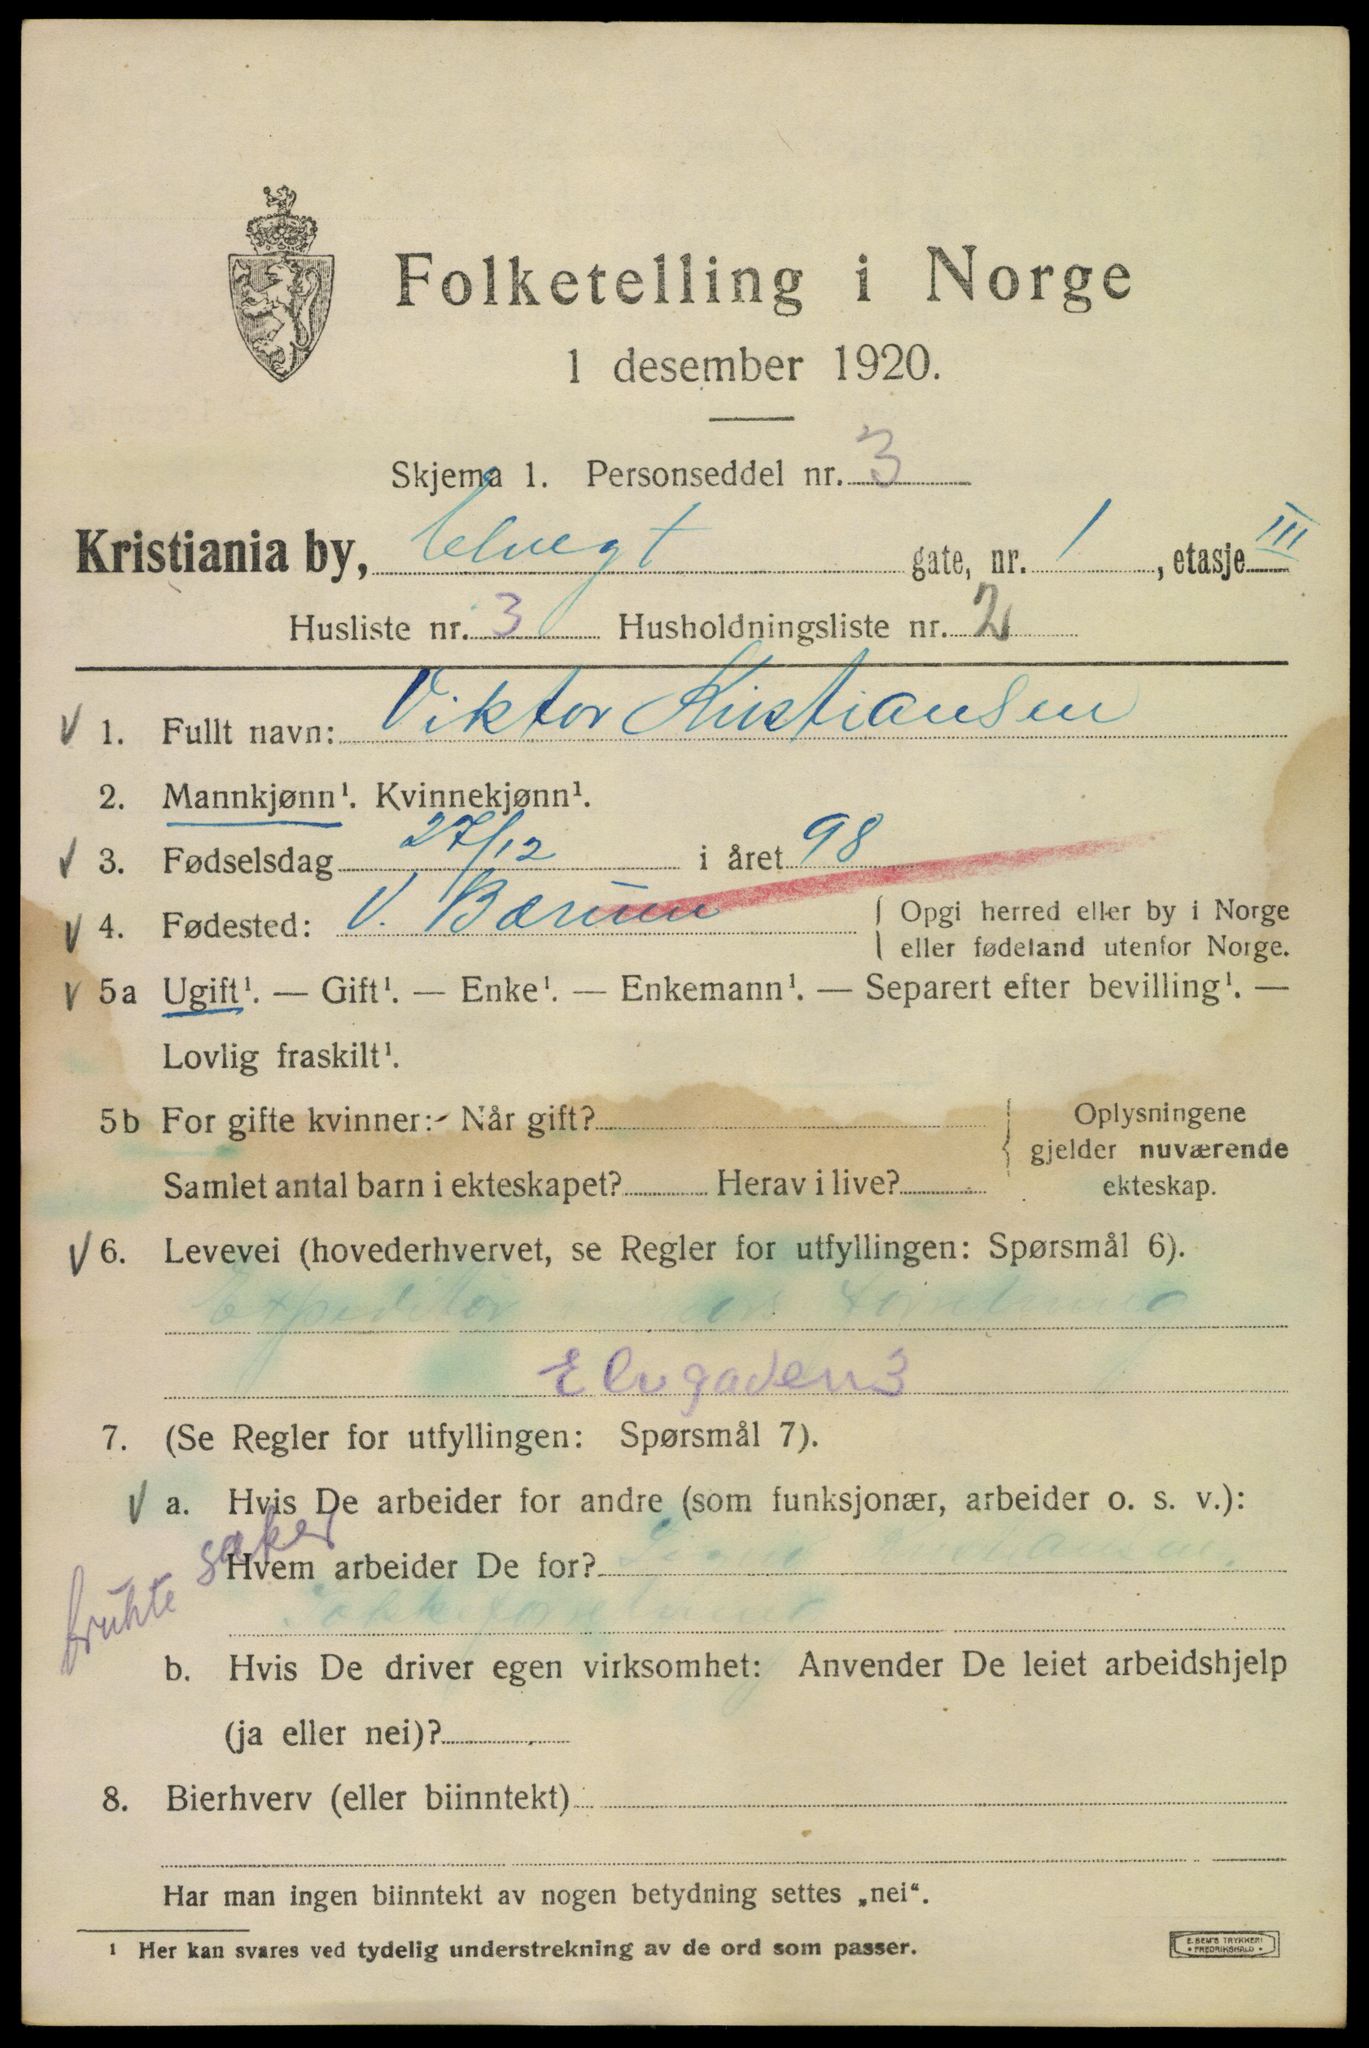 Folketelling i Norge
1 desember 1920.
Skjema 1. Personseddel nr. 3
Kristiania by, Elvegt gate, nr. 1, etasje III
Husliste nr. 3 Husholdningsliste nr. 2
V 1. Fullt navn: Viktor Kristiansen
2. Mannkjønn¹. Kvinnekjønn¹.
V 3. Fødselsdag 27/12 i året 98
V 4. Fødested: V. Bærum { Opgi herred eller by i Norge
eller fødeland utenfor Norge.
V 5a Ugift¹. — Gift¹. — Enke¹. — Enkemann¹. — Separert efter bevilling¹. —
Lovlig fraskilt¹.
5b For gifte kvinner: Når gift? Oplysningene
gjelder nuværende
Samlet antal barn i ekteskapet? Herav i live? ekteskap.
V 6. Levevei (hovederhvervet, se Regler for utfyllingen: Spørsmål 6).
Expeditør forretning
Elvgaden 3
7. (Se Regler for utfyllingen: Spørsmål 7).
V a. Hvis De arbeider for andre (som funksjonær, arbeider o. s. v.):
Hvem arbeider De for? Kristiansen
forretning
frukte saker
b. Hvis De driver egen virksomhet: Anvender De leiet arbeidshjelp
(ja eller nei)?
8. Bierhverv (eller biinntekt)
Har man ingen biinntekt av nogen betydning settes „nei“.
¹ Her kan svares ved tydelig understrekning av de ord som passer.
E. SEM'S TRYKKERI
• FREDRIKSHALD •